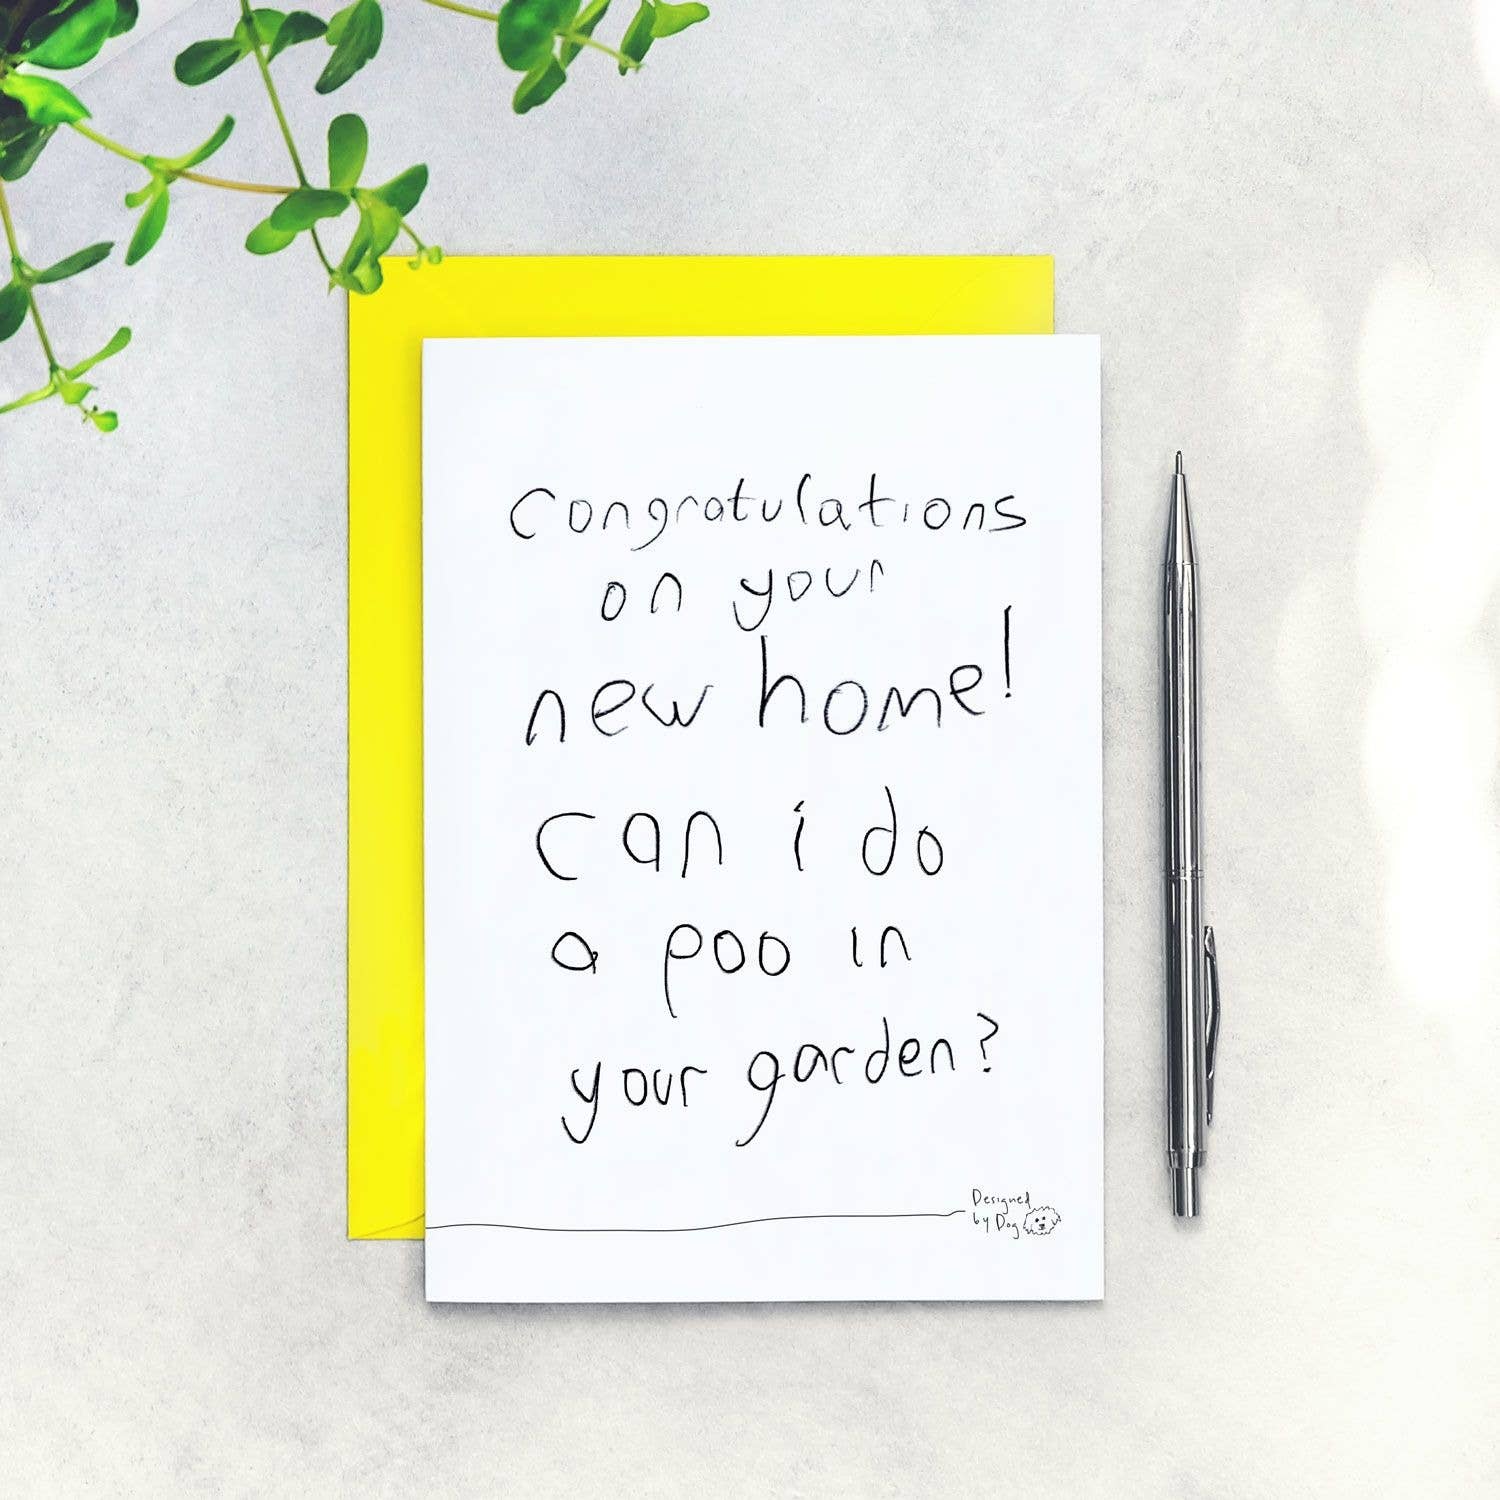 congratulations
on your
new home!
can i do
a poo in
your garden?
Designed
by Dog